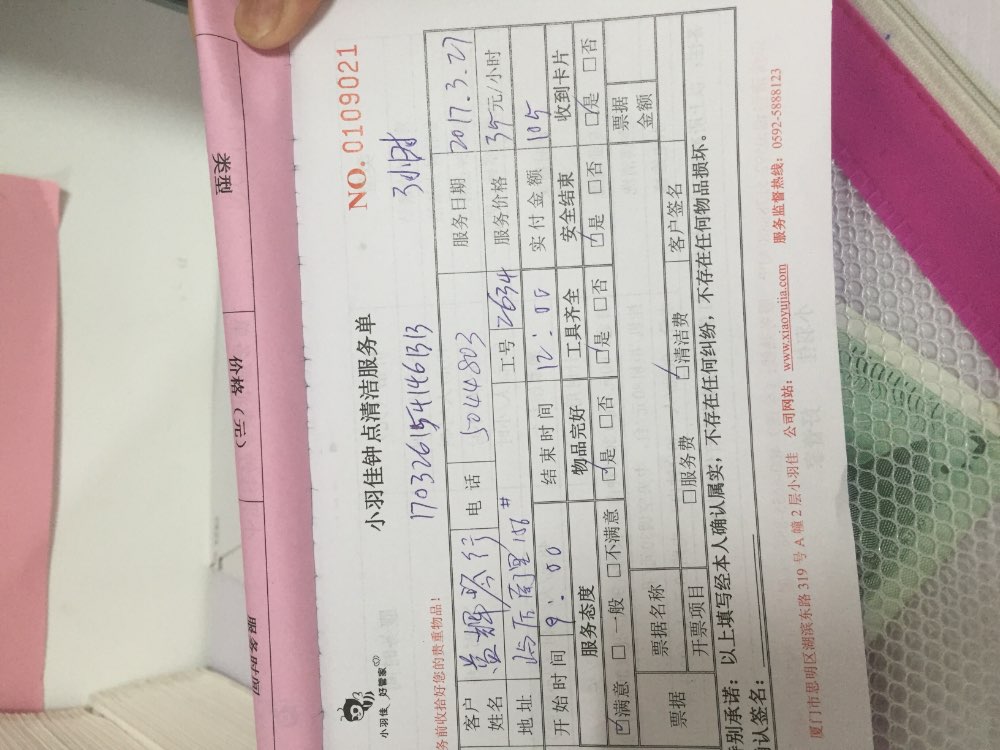 类型
价格（元）
服务时间
NO. 0109021
小羽佳 好管家
小羽佳钟点清洁服务单
1703261541461313
3小时
务前收拾好您的贵重物品！
客户姓名 电话 5044803 服务日期 2017.3.27
地址 工号 2634 服务价格 35元/小时
开始时间 9:00 结束时间 12:00 实付金额 105
服务态度 物品完好 工具齐全 安全结束 收到卡片
☑满意 □一般 □不满意 ☑是 □否 ☑是 □否 ☑是 □否 ☑是 □否
票据 票据名称 票据金额
开票项目 □服务费 ☑清洁费 客户签名
特别承诺：以上填写经本人确认属实，不存在任何纠纷，不存在任何物品损坏。
认签名：
厦门市思明区湖滨东路 319 号 A 幢 2 层小羽佳 公司网站：www.xiaoyujia.com 服务监督热线：0592-5888123